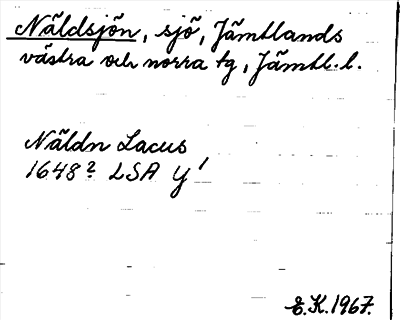 Näldsjön, sjö, Jämtlands
västra och norra tg, Jämtl. l.
Näldn Lacus
1648? LSA Y'
E.K. 1967.